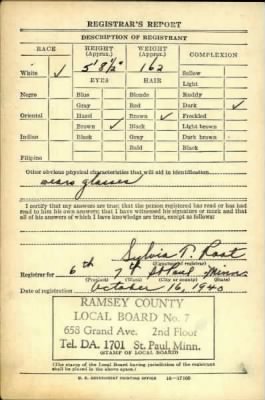 REGISTRAR'S REPORT
DESCRIPTION OF REGISTRANT
RACE HEIGHT (Approx.) WEIGHT (Approx.) COMPLEXION
White ✓ 5' 8½" 162 Sallow
EYES HAIR Light
Negro Blue Blonde Ruddy
Gray Red Dark ✓
Oriental Hazel Brown Freckled
Brown ✓ Black ✓ Light brown
Indian Black Gray Dark brown
Bald Black
Filipino
Other obvious physical characteristics that will aid in identification
wears glasses
I certify that my answers are true; that the person registered has read or has had
read to him his own answers; that I have witnessed his signature or mark and that
all of his answers of which I have knowledge are true, except as follows:
Sylvia T. Root
(Signature of registrar)
Registrar for 6th 7th St Paul Minn.
(Precinct) (Ward) (City or county) (State)
Date of registration October 16, 1940
RAMSEY COUNTY
LOCAL BOARD No. 7
658 Grand Ave. 2nd Floor
Tel. DA. 1701 St. Paul, Minn.
(STAMP OF LOCAL BOARD)
(The stamp of the Local Board having jurisdiction of the registrant
shall be placed in the above space.)
U. S. GOVERNMENT PRINTING OFFICE 16-17105